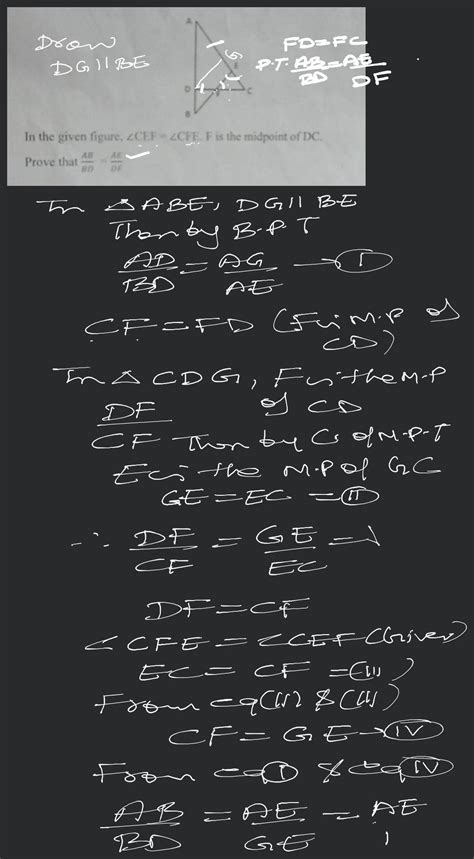 Draw
DG||BE
FD=FC
P.T. AB/BD = AE/DF
A
G
E
D
F
C
B
In the given figure, ∠CEF = ∠CFE. F is the midpoint of DC.
Prove that AB/BD = AE/DF
In △ABE, DG||BE
Then by B.P.T
AD/BD = AG/AE → I
CF = FD (F is M.P of CD)
In △CDG, F is the M.P of CD
DF/CF Then by C of M.P.T
E is the M.P of GC
GE = EC = II
∴ DF/CF = GE/EC = 1
DF = CF
∠CFE = ∠CEF (Given)
EC = CF = (III)
From eq (II) & (III)
CF = GE → IV
From eq I & eq IV
AB/BD = AE/GE = AE